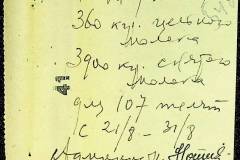 360 кг. цельного
молока
3900 кг. снятого
молока
для 107 телят
с 21/8 – 31/8